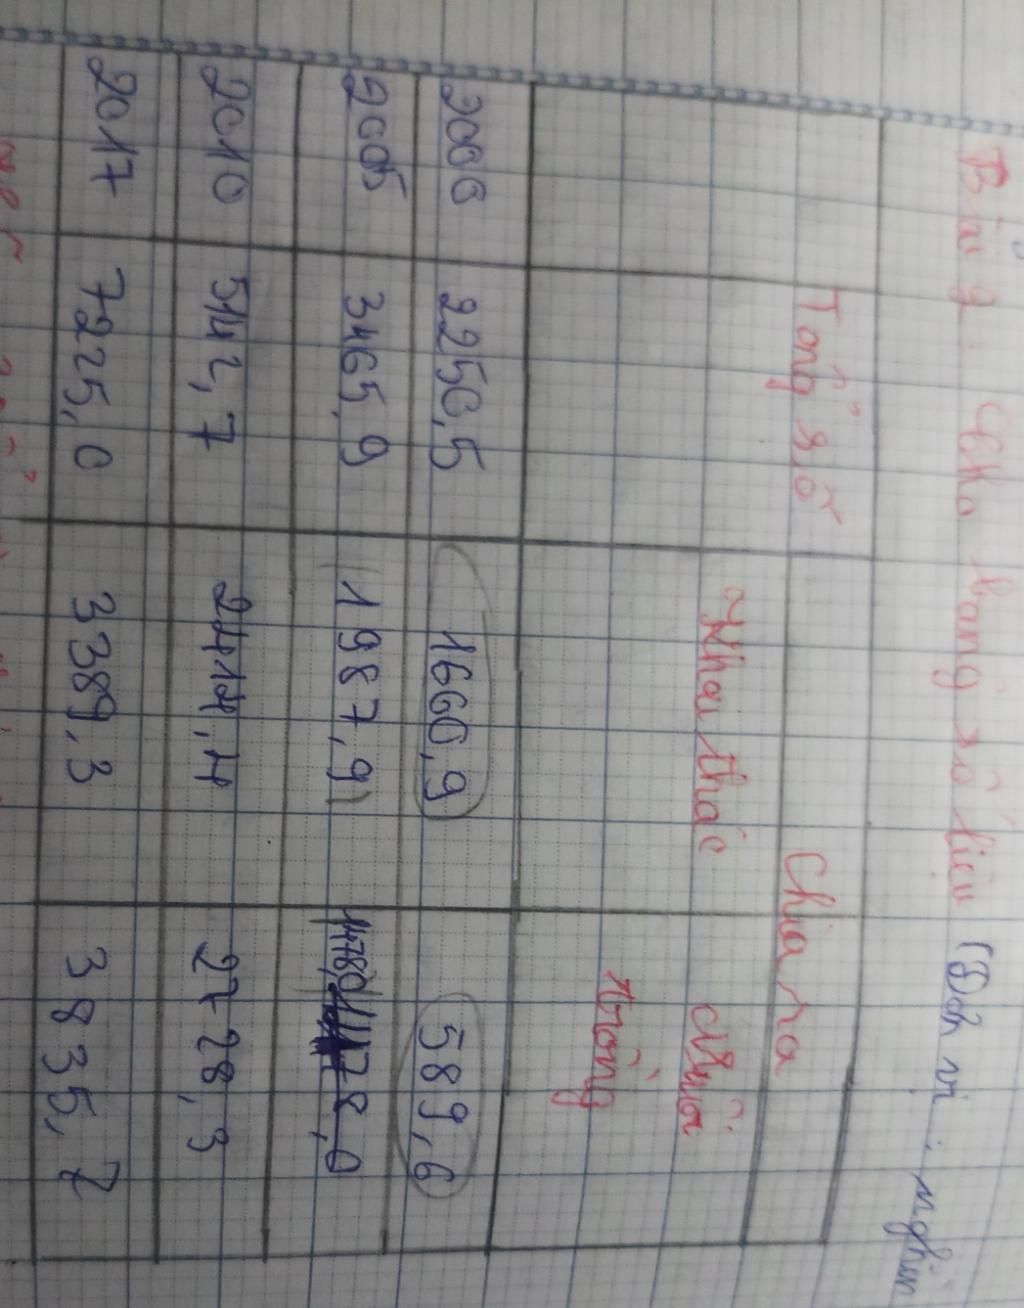 Bài 2. Cho bảng số liệu (Đơn vị: nghìn
Tổng số Chia ra
Khai thác Nuôi
trồng
2000 2250,5 1660,9 589,6
2005 3465,9 1987,9 1478,0
2010 5142,7 2414,4 2728,3
2017 7225,0 3389,3 3835,7